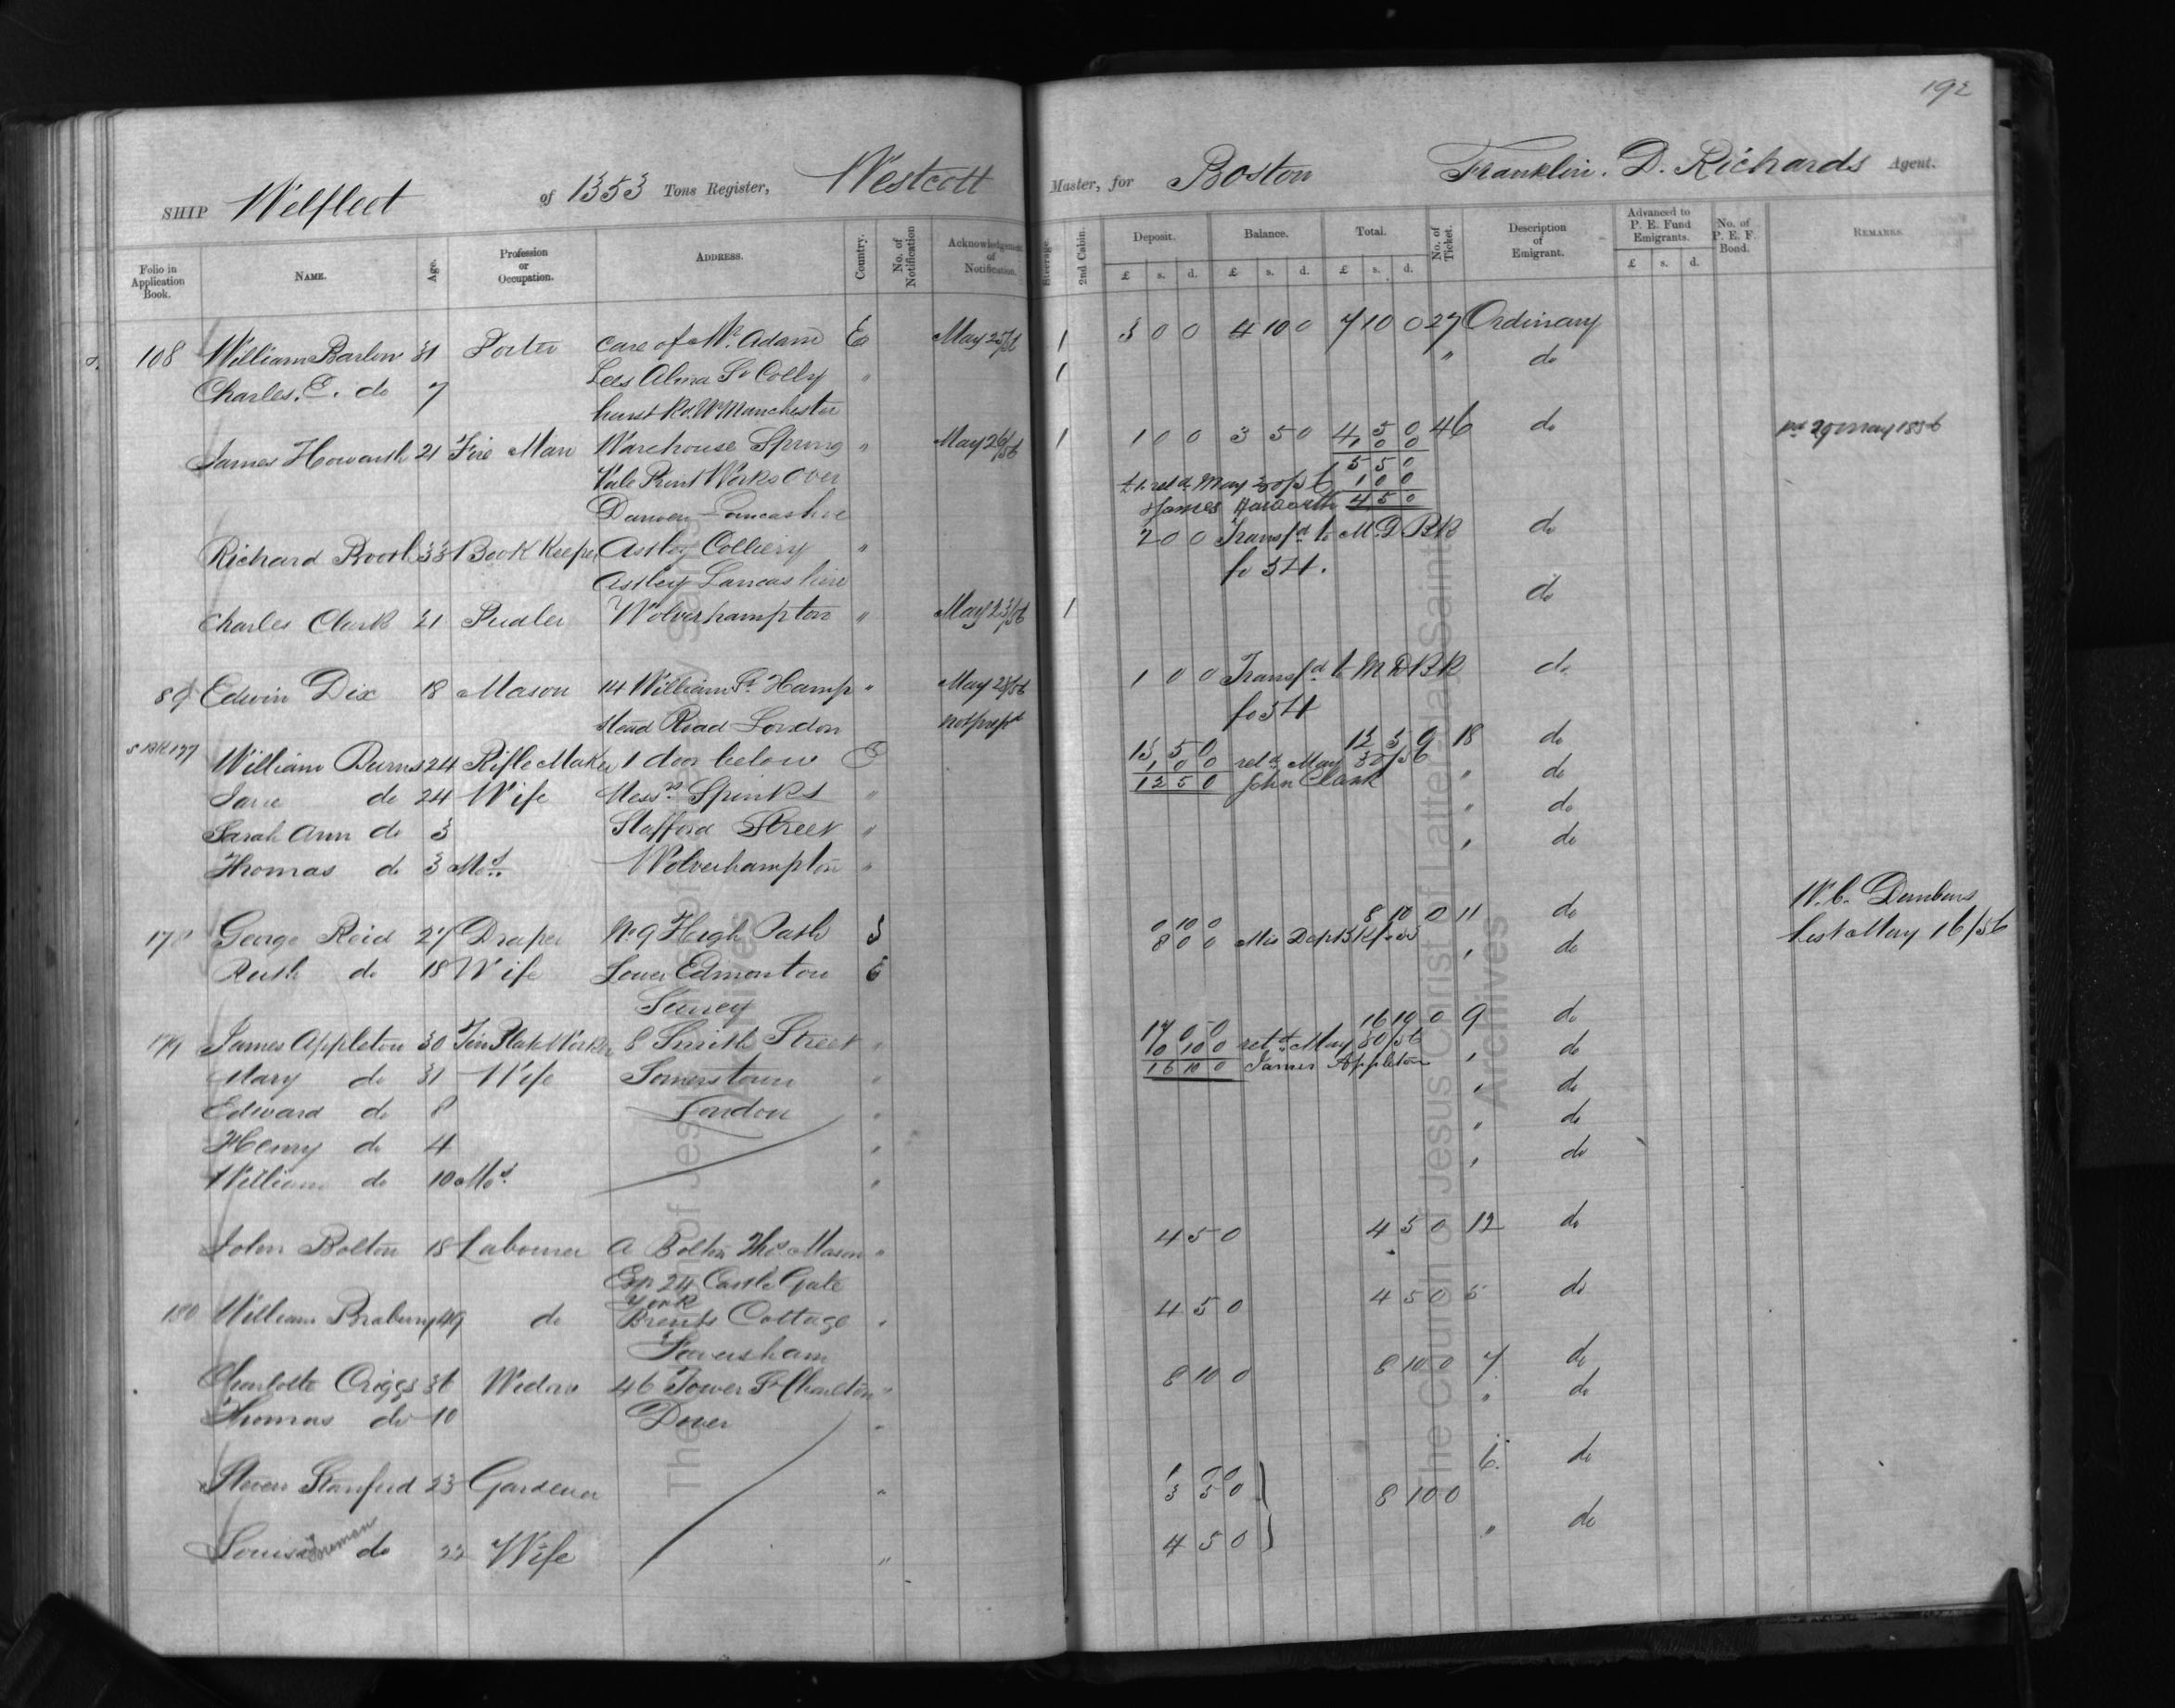 192
SHIP Welfleet of 1353 Tons Register, Westcott Master, for Boston Franklin. D. Richards Agent.
Folio in Application Book. NAME. Age. Profession or Occupation. ADDRESS. Country. No. of Notification Acknowledgement of Notification. Steerage. 2nd Cabin. Deposit. Balance. Total. No. of Ticket. Description of Emigrant. Advanced to P. E. Fund Emigrants. No. of P. E. F. Bond. REMARKS.
£ s. d. £ s. d. £ s. d. £ s. d.
108 William Barlow 31 Porter care of Mr. Adam E May 25/56 1 3 0 0 4 10 0 7 10 0 27 Ordinary
Charles. E. do 7 Lees Alma St Colly " 1 " do
hurst Rd. Manchester
James Howarth 21 Fire Man Warehouse Spring " May 26/56 1 1 0 0 3 5 0 4 5 0 46 do
1 0 0
5 5 0
Vale Print Works Over £1 retd. May 30/56 1 0 0
Darwen Lancashire James Haworth 4 5 0
Richard Booth 33 Book Keeper Astley Colliery " 2 0 0 Transfd to M. D. BK do
Astley Lancashire fo 54.
Charles Clark 21 Pudler Wolverhampton " May 23/56 1 do
89 Edwin Dix 18 Mason 14 William St. Hamp " May 23/56 1 0 0 Transfd to M D BK do
stead Road London fo 54
177 William Burns 24 Rifle Maker 1 door below E 13 5 0 18 do
1 0 0 retd. May 30/56
Jane do 24 Wife Messrs. Spinks " 12 5 0 John Clark " do
Sarah Ann do 3 Stafford Street " " do
Thomas do 3 Mos. Wolverhampton " " do
178 George Reid 27 Draper No. 9 High Path S 0 10 0 8 10 0 11 do W. C. Dunbars
8 0 0
Ruth do 18 Wife Lower Edmonton E " do list May 16/56
Surrey
179 James Appleton 30 Tin Plate Worker 8 Smith Street " 17 0 0 9 do
0 10 0 retd. May 30/56
Mary do 31 Wife Somerstown " 16 10 0 James Appleton " do
Edward do 8 London " " do
Henry do 4 " " do
William do 10 Mos. " " do
John Bolton 18 Labourer a Bolton Thos Mason " 4 5 0 4 5 0 12 do
24 Castle Gate
York
180 William Brabury 49 do Brents Cottage " 4 5 0 4 5 0 5 do
Faversham
Charlotte Griggs 36 Widow 46 Tower St Charlton " 8 10 0 8 10 0 7 do
Thomas do 10 Dover " " do
Steven Stanford 23 Gardener " 1 0 0 6 do
3 5 0 8 10 0
Louisa do 22 Wife " 4 5 0 " do
The Church of Jesus Christ of Latter-day Saints
Archives